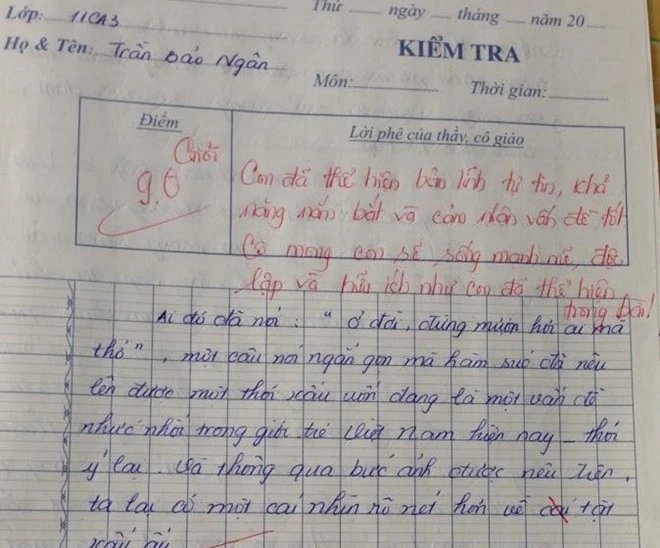 Thứ ngày tháng năm 20
Lớp: 11CA3
Họ & Tên: Trần Bảo Ngân
KIỂM TRA
Môn: Thời gian:
Điểm
Lời phê của thầy, cô giáo
Chín
9.0
Con đã thể hiện bản lĩnh tự tin, khả
năng nắm bắt và cảm nhận vấn đề tốt
Cô mong con sẽ sống mạnh mẽ, độc
lập và hữu ích như con đã thể hiện
trong bài!
Ai đó đã nói : " ở đời, đừng mượn hơi ai mà
thở", một câu nói ngắn gọn mà hàm súc đã nêu
lên được một thói xấu vốn đang là một vấn đề
nhức nhối trong giới trẻ Việt Nam hiện nay - thói
ỷ lại. Và thông qua bức ảnh được nêu trên,
ta lại có một cái nhìn rõ nét hơn về cái tật
xấu ấy